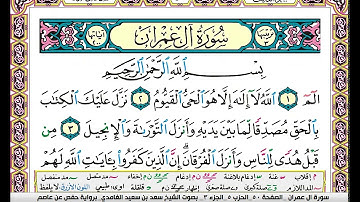 سُورَةُ آلِ عِمْرَانَ
بِسْمِ ٱللَّهِ ٱلرَّحْمَٰنِ ٱلرَّحِيمِ
الٓمٓ ١ ٱللَّهُ لَآ إِلَٰهَ إِلَّا هُوَ ٱلْحَىُّ ٱلْقَيُّومُ ٢ نَزَّلَ عَلَيْكَ ٱلْكِتَٰبَ
بِٱلْحَقِّ مُصَدِّقًا لِّمَا بَيْنَ يَدَيْهِ وَأَنزَلَ ٱلتَّوْرَىٰةَ وَٱلْإِنجِيلَ ٣ مِن
قَبْلُ هُدًى لِّلنَّاسِ وَأَنزَلَ ٱلْفُرْقَانَ إِنَّ ٱلَّذِينَ كَفَرُوا۟ بِـَٔايَٰتِ ٱللَّهِ لَهُمْ
سورة آل عمران الصفحة ٥٠ الجزء ٣ بصوت الشيخ سعد بن سعيد الغامدي برواية حفص عن عاصم